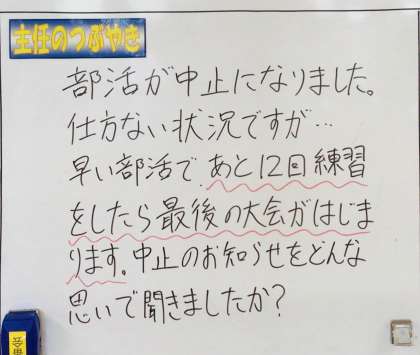 主任のつぶやき
部活が中止になりました。
仕方ない状況ですが…
早い部活で、あと12回練習
をしたら最後の大会がはじま
ります。中止のお知らせをどんな
思いで聞きましたか?